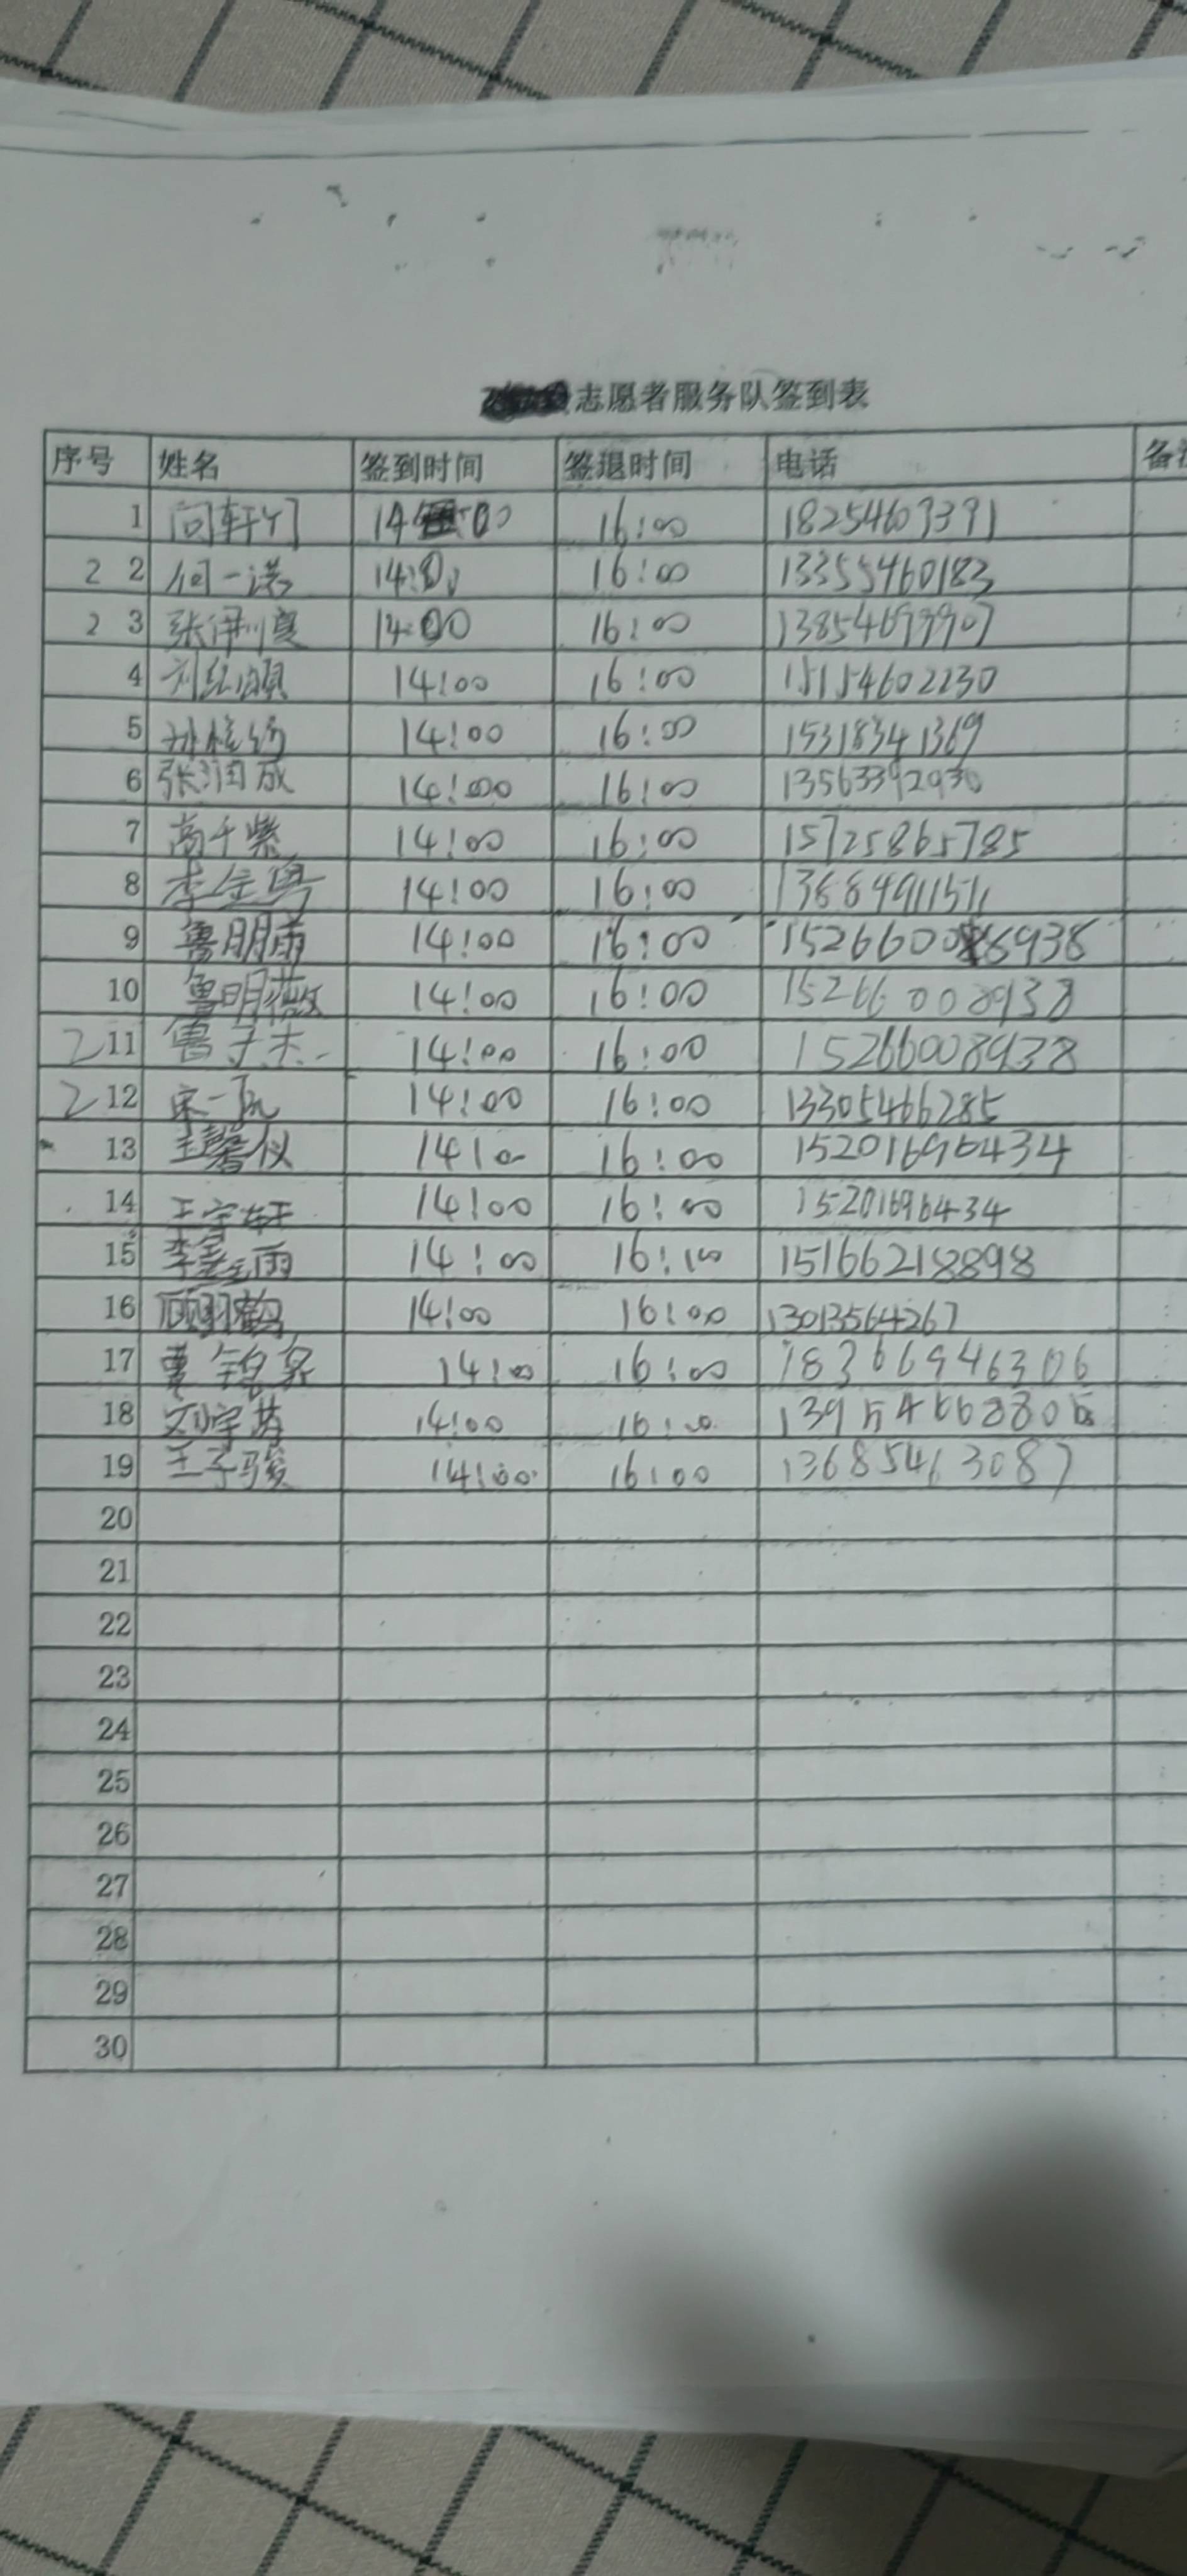 志愿者服务队签到表
序号 姓名 签到时间 签退时间 电话
1 闫轩 14 00 16:00 18254609391
2 2 何一诺 14:00 16:00 13355460183
2 3 张伊夏 14:00 16:00 13854699907
4 刘 14:00 16:00 15154602230
5 14:00 16:00 15318341369
6 张润成 14:00 16:00 13563392930
7 高千紫 14:00 16:00 15725865785
8 李 14:00 16:00 13684911511
9 鲁明雨 14:00 16:00
10 鲁明薇 14:00 16:00 15266008938
2 11 鲁 14:00 16:00 15266008938
2 12 宋一 14:00 16:00 13305466285
13 王馨仪 16:00 15201696434
14 王宇轩 14:00 16:00 15201696434
15 李 雨 14:00 15166218898
16 顾羽鹤 14:00 16:00 13013564267
17 曹 14:00 16:00 18366946306
18 刘宇 14:00 16:00
19 王子骏 14:00 16:00 13685463087
20
21
22
23
24
25
26
27
28
29
30